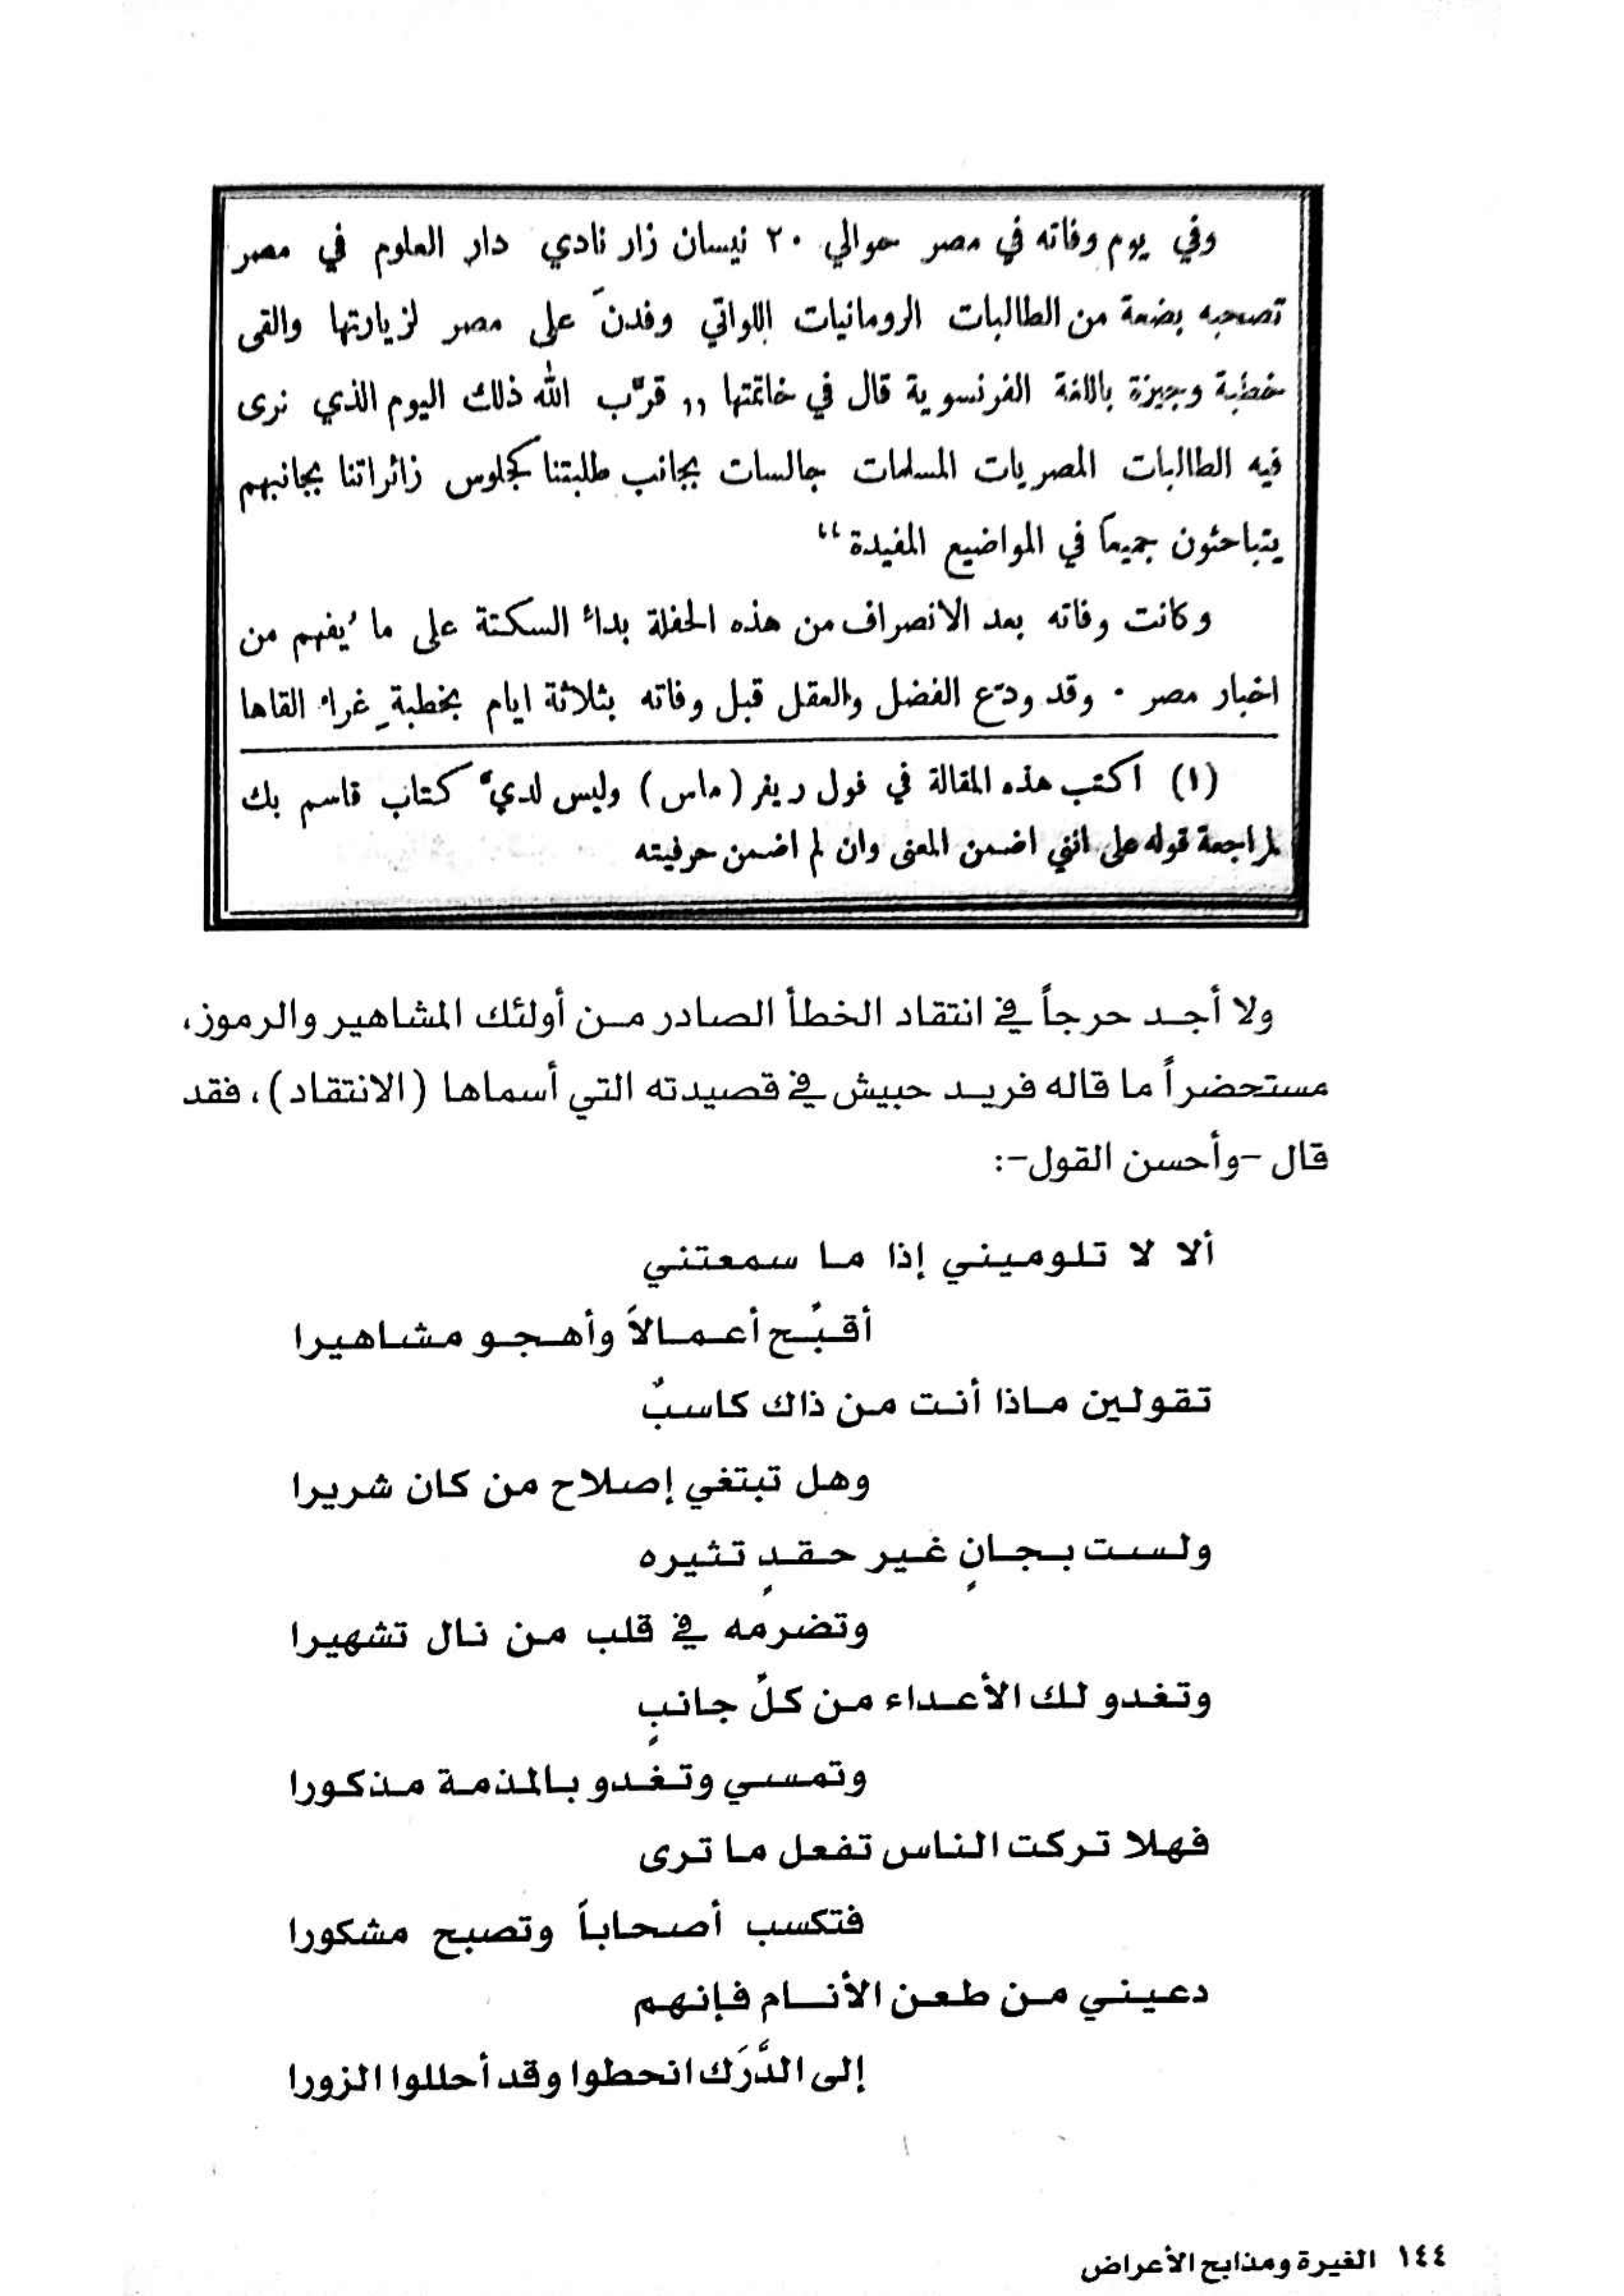 وفي يوم وفاته في مصر حوالي ٢٠ نيسان زار نادي دار العلوم في مصر
تصحبه بضعة من الطالبات الرومانيات اللواتي وفدنَ على مصر لزيارتها والقى
خطبة وجيزة باللغة الفرنسوية قال في خاتمتها ,, قرّب الله ذلك اليوم الذي نرى
فيه الطالبات المصريات المسلمات جالسات بجانب طلبتنا كجلوس زائراتنا بجانبهم
يتباحثون جميعاً في المواضيع المفيدة“
وكانت وفاته بعد الانصراف من هذه الحفلة بداء السكتة على ما يُفهم من
اخبار مصر · وقد ودّع الفضل والعقل قبل وفاته بثلاثة ايام بخطبةٍ غراء القاها
(١) اكتب هذه المقالة في فول ريفر (ماس) وليس لديَّ كتاب قاسم بك
لمراجعة قوله على انني اضمن المعنى وان لم اضمن حرفيته
ولا أجد حرجاً في انتقاد الخطأ الصادر من أولئك المشاهير والرموز،
مستحضراً ما قاله فريد حبيش في قصيدته التي أسماها (الانتقاد)، فقد
قال -وأحسن القول-:
ألا لا تلوميني إذا ما سمعتني
أقبِّح أعمالاً وأهجو مشاهيرا
تقولين ماذا أنت من ذاك كاسبٌ
وهل تبتغي إصلاح من كان شريرا
ولست بجانٍ غير حقدٍ تثيره
وتضرمه في قلب من نال تشهيرا
وتغدو لك الأعداء من كلّ جانبٍ
وتمسي وتغدو بالمذمة مذكورا
فهلا تركت الناس تفعل ما ترى
فتكسب أصحاباً وتصبح مشكورا
دعيني من طعن الأنام فإنهم
إلى الدَّرَك انحطوا وقد أحللوا الزورا
١٤٤ الغيرة ومذابح الأعراض